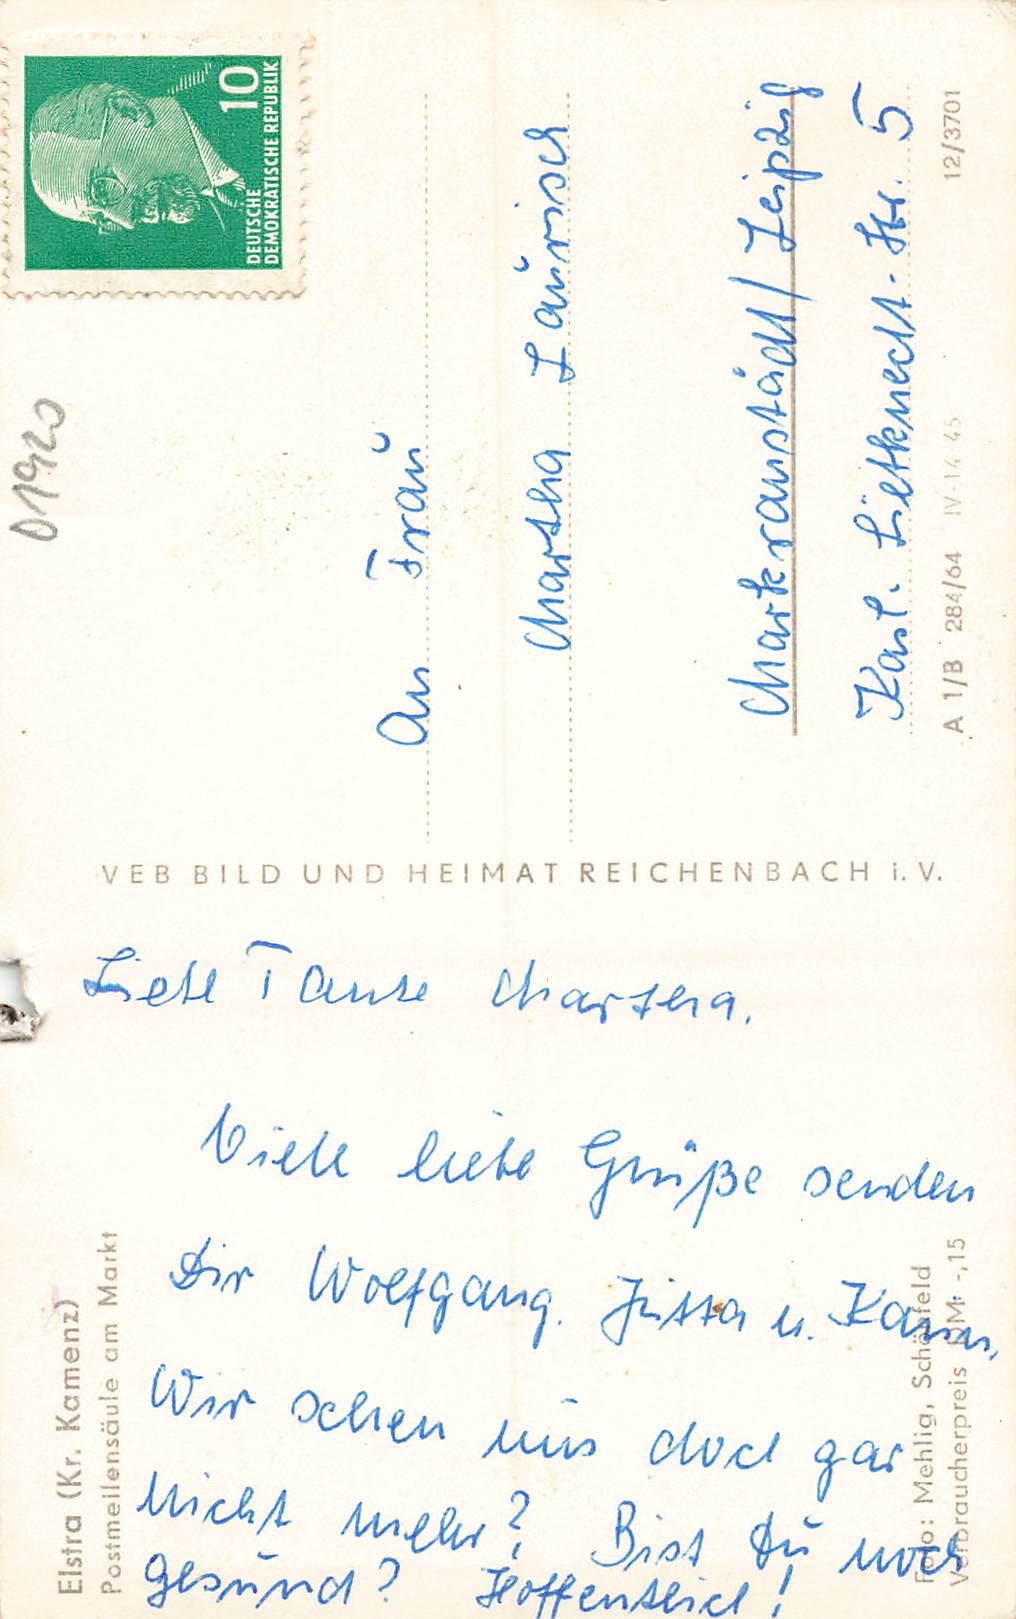 10
DEUTSCHE
DEMOKRATISCHE REPUBLIK
D1920
An Frau
Martha Laurisch
Markranstädt/Leipzig
Karl. Liebknecht-Str. 5
A 1/B 284/64 IV-14 45 12/3701
VEB BILD UND HEIMAT REICHENBACH i. V.
Liebe Tante Martha.
Viele liebe Grüße senden
Dir Wolfgang. Jutta u. Karin.
Wir sehen uns doch gar
nicht mehr? Bist Du noch
gesund? Hoffentlich!
Elstra (Kr. Kamenz)
Postmeilensäule am Markt
Foto: Mehlig, Schönfeld
Verbraucherpreis DM -,15